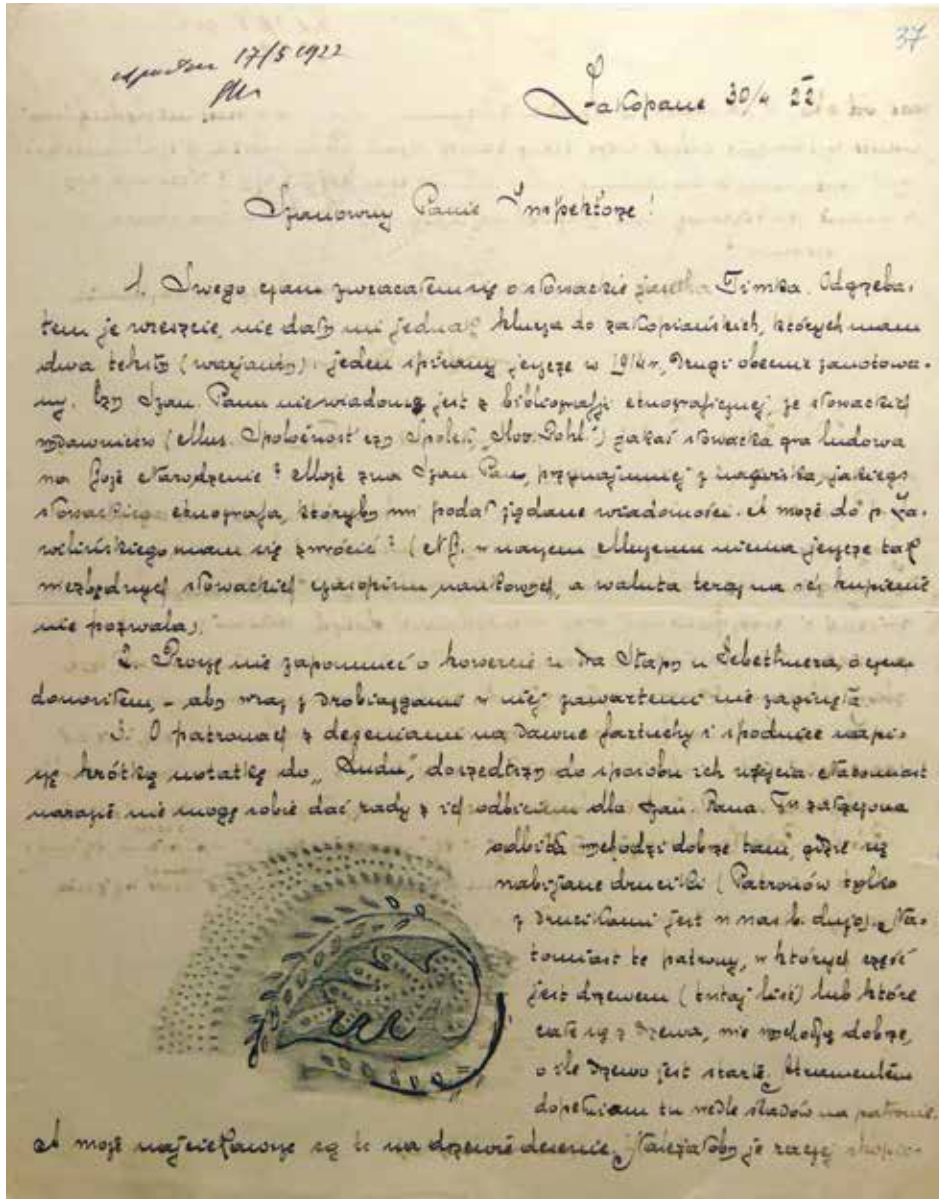 37
17/5 1922
Zakopane 30/4 22
Szanowny Panie Inspektorze!
1. Swego czasu zwracałem się o słowackie jasełka Timka. Odgrzeba-
łem je wreszcie, nie dały mi jednak klucza do zakopiańskich, których mam
dwa teksty (warjanty): jeden spisany jeszcze w 1914 r, drugi obecnie zanotowa-
ny. Czy Szan. Panu niewiadomą jest z bibliografji etnograficznej, ze słowackich
wydawnictw (Mus. Spoločnost czy Spolek, „Slov. Pohl.") jakaś słowacka gra ludowa
na Boże Narodzenie? Może zna Szan Pan, przynajmniej z nazwiska, jakiego
słowackiego etnografa, któryby mi podał żądane wiadomości. A może do p. Za-
wilińskiego mam się zwrócić? (NB. w naszem Muzeum niema jeszcze tak
niezbędnych słowackich czasopism naukowych, a waluta teraz na ich kupienie
nie pozwala).
2. Proszę nie zapomnieć o kowercie dla Stapy u Gebethnera, o czem
donosiłem, – aby wraz z drobiazgami w niej zawartemi nie zaginęła
3. O patronach z deseniami na dawne fartuchy i spódnice napi-
szę krótką notatkę do „Ludu", doszedłszy do sposobu ich użycia. Natomiast
narazie nie mogę sobie dać rady z ich odbiciem dla Szan. Pana. Tu załączona
odbitka wychodzi dobrze tam, gdzie są
nabijane druciki (Patronów tylko
z drucikami jest u nas b. dużo). Na-
tomiast te patrony, w których część
jest drzewem (tutaj liść) lub które
całe są z drzewa, nie wychodzą dobrze,
o ile drzewo jest starte. Atramentem
dopełniam tu wedle śladów na patronie.
A może najciekawsze są te na drzewie desenie. Należałoby je raczej skopio-